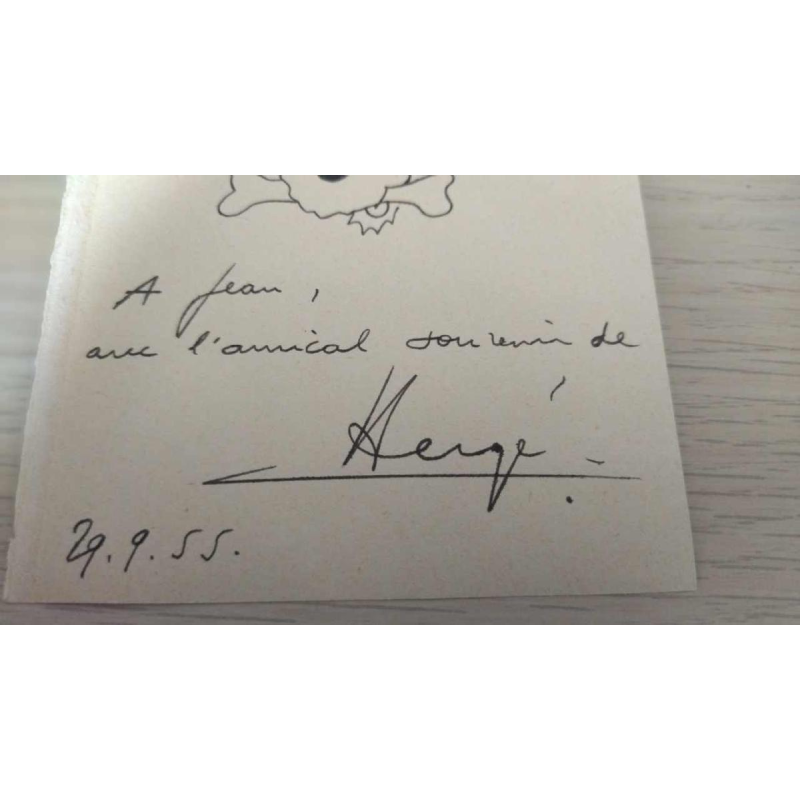 A Jean,
avec l'amical souvenir de
Hergé.
29.9.55.